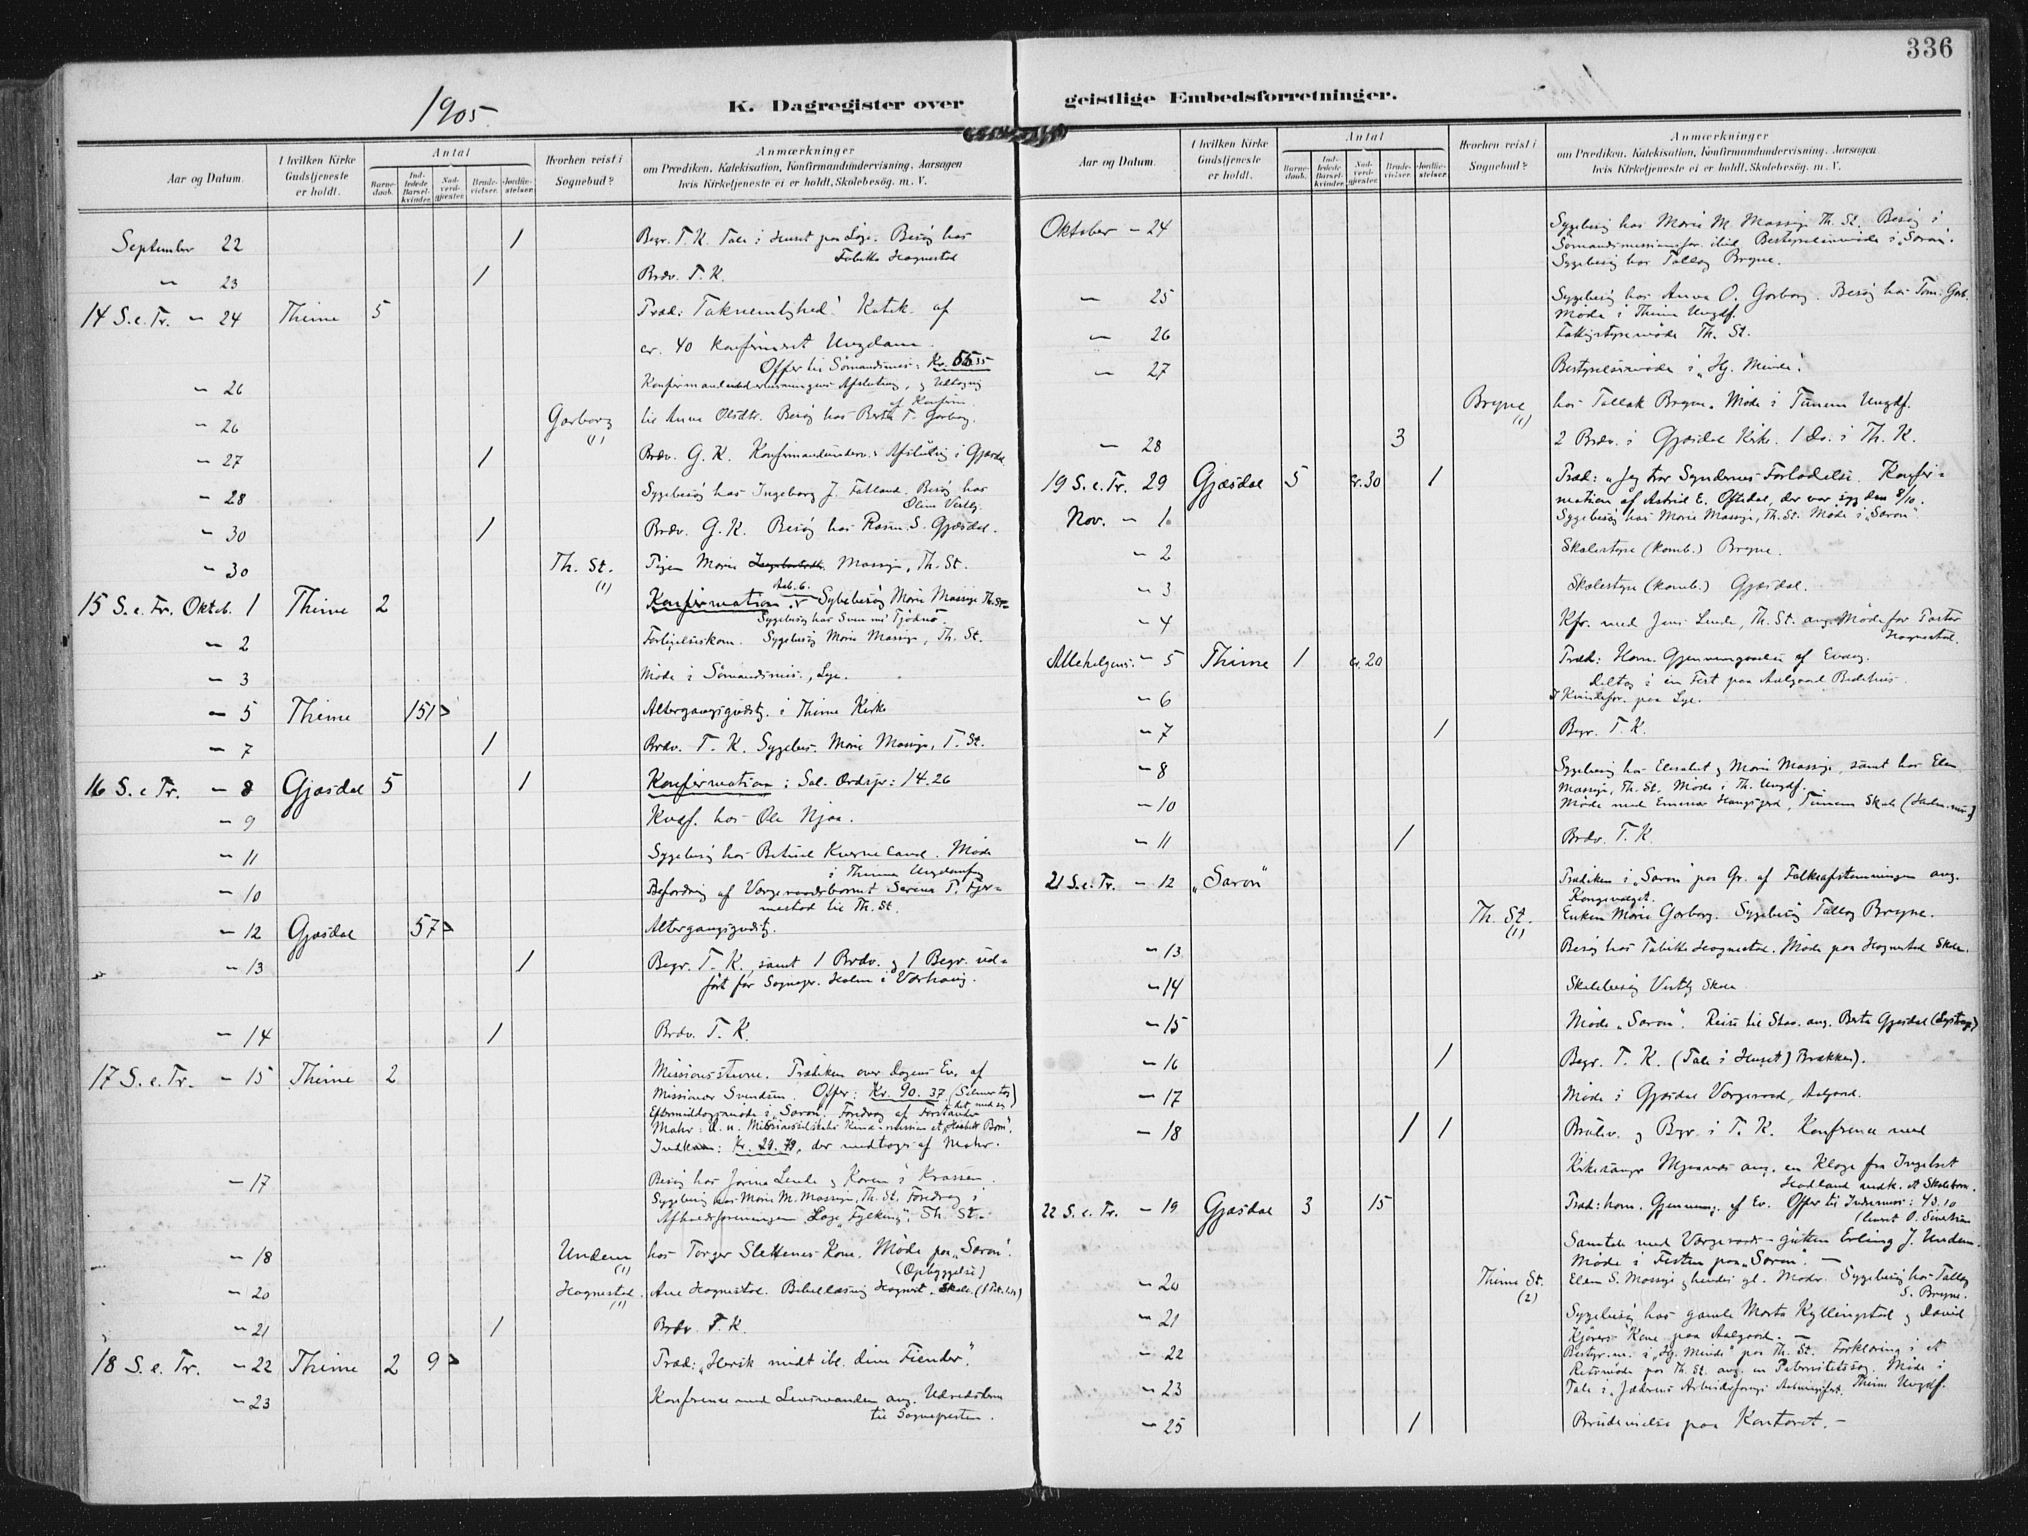 336
1905.
K. Dagregister over geistlige Embedsforretninger.
Aar og Datum.
I hvilken Kirke Gudstjeneste er holdt.
Antal
Barnedaab.
Indledede Barselkvinder.
Nadverdgjester.
Brudevielser.
Jordfæstelser.
Hvorhen reist i Sognebud?
Anmærkninger
om Prædiken, Katekisation, Konfirmandundervisning, Aarsagen
hvis Kirketjeneste ei er holdt, Skolebesøg, m. V.
September 22 1 Begr. T. K. Tale i Huset paa Lye. Besøg hos
Tabitta Hognestad
" 23 1 Brdv. T. K.
14 S. e. Tr. - 24 Thime 5 Præd: Taknemlighed! Katek. af
cr. 40 konfirmeret Ungdom.
Offer til Sømandsmis: Kr.
- 26 Konfirmandundervisningens Afslutning, og
af Konfirm.
- 26 Garborg (1) hos Anna Olsdtr. Besøg hos Berta T. Garborg.
- 27 1 Brdv. G. K. Konfirmandunderv.s Afslutning i Gjæsdal
- 28 Sygebesøg hos Ingeborg J. Fatland. Besøg hos
- 30 1 Brdv. G. K. Besøg hos Rasm. S. Gjæsdal.
- 30 Th. St. (1) Pigen Marie Massige, Th. St.
15 S. e. Tr. Oktob. 1 Thime 2 Konfirmation. Sygebesøg Marie Massige Th. St.
Sygebesøg hos Sven
- 2 Forligelseskom. Sygebesøg Marie Massige, Th. St.
- 3 Møde i Sømandsmis., Lye.
- 5 Thime 151 Altergangsgudstj. i Thime Kirke
- 7 1 Brdv. T. K. Sygebes. Marie Massige, T. St.
16 S. e Tr. - 8 Gjæsdal 5 1 Konfirmation: Sal. Ordspr: 14.26
- 9 hos Ole Njaa.
- 11 Sygebesøg hos Kverneland. Møde
i Thimes Ungdomsfog
- 10 Befordring af Vergeraadsbarnet Serina T. Fjermestad til Th. St.
- 12 Gjæsdal 57 Altergangsgudstj.
- 13 1 Begr. T. K., samt 1 Brdv. og 1 Begr. udført for Sognepr. Holm i Varhaug.
- 14 1 Brdv. T. K.
17 S. e. Tr. - 15 Thime 2 Missionsstevne. Prædiken over Dagens Ev. af
Missionær Svendsen. Offer: Kr. 90. 37
Eftermiddagsmøde i "Saron". Foredrag af Forstander
, der medtoges af
- 17 Besøg hos Jorina Lende og Karen i Krossen.
Sygebesøg hos Marie M. Massige, Th. St. Foredrag i
Afholdsforeningen Loge "Fylking", Th. St.
- 18 Undem (1) hos Torger Slettenes Kone. Møde paa "Saron".
(Opbyggelse)
- 20 Hognestad (1) Ane Hognestad. Bibellæsning Hognest. Skole
- 21 1 Brdv T. K.
18 S. e. Tr. - 22 Thime 2 9 Præd: "Hersk midt ibl. dine Fiender".
- 23 Konference med Lensmanden ang. Udredelserne
til Sognepresten.
Aar og Datum.
I hvilken Kirke Gudstjeneste er holdt.
Antal
Barnedaab.
Indledede Barselkvinder.
Nadverdgjester.
Brudevielser.
Jordfæstelser.
Hvorhen reist i Sognebud?
Anmærkninger
om Prædiken, Katekisation, Konfirmandundervisning, Aarsagen
hvis Kirketjeneste ei er holdt, Skolebesøg, m. V.
Oktober - 24 Sygebesøg hos Marie M. Massige Th. St. Besøg i
Sømandsmissionsfor. Bestyrelsesmøde i "Saron".
Sygebesøg hos Tallag Bryne.
- 25 Sygebesøg hos Anna O. Garborg. Besøg hos Tom. Garb.
Møde i Thime Ungdf.
- 26 Fattigstyremøde Th. St.
- 27 Bestyrelsesmøde i "Hj. Minde".
Bryne (1) hos Tallak Bryne. Møde i Timem Ungdf.
- 28 3 2 Brdv. i Gjæsdal Kirke. 1 do. i Th. K.
19 S. e. Tr. 29 Gjæsdal 5 cr. 30 1 Præd: "Jeg tror Syndernes Forladelse. Konfirmation af Astrid E. Oftedal, der var syg den 8/10.
Nov. - 1. Sygebesøg hos Marie Massige, Th. St. Møde i "Saron"
- 2 Skolestyre (komb.) Bryne.
- 3 Skolestyre (komb.) Gjæsdal.
- 4 Kfr. med Jens Lende, Th. St. ang. Møde for Pastor
Hognestad.
Allehelgens. - 5 Thime 1 cr. 20 Præd: Hom. Gjennemgaaelse af Evang.
Deltog i en Fest paa Aalgaard Bedehus.
- 6 I Kvindefor. paa Lye.
- 7 1 Begr. T. K.
- 8 Sygebesøg hos Elisabet og Marie Massige, samt hos Elen
Massige, Th. St. Møde i Th. Ungdf.
- 10 Møde med Timem Skole
- 11 1 Brdv. T. K
21 S. e. Tr. - 12 "Saron" Prædiken i "Saron" paa Gr. af Folkeafstemningen ang.
Kongevalget.
Th. St. (1) Enken Marie Garborg. Sygebesøg Tallag Bryne.
- 13 Besøg hos Tabitta Hognestad. Møde paa Hognestad Skole.
- 14 Skolebesøg Vestly Skole
- 15 Møde "Saron". Reise til Stav. ang. Berta Gjæsdal
- 16 1 Begr. T. K. (Tale i Huset) Brækken).
- 17 Møde i Gjæsdal Vergeraad, Aalgaard.
- 18 1 1 Brdv. og Begr. i T. K. Konferance med
Kirkesanger ang. en Klage fra Ingebret
Hadland Skolebarn.
22 S. e. Tr. - 19 Gjæsdal 3 15 Præd: hom. Gjennemg. af Ev. Offer til Indremis: 43.10
Samtale med Vergeraads-gutten Erling J. Undem.
Møde i Festen paa "Saron". -
- 20 Thime St. (2) Elen S. Massige og hendes gl. Moder. Sygebesøg hos Tallag
S. Bryne.
- 21 Sygebesøg hos gamle Marta Kyllingstad og David
Kone paa Aalgaard. -
- 22 Bestyr.m. i "Hj. Minde" paa Th. St. Forklaring i et
Retsmøde paa Th. St. ang. en Paternitetssag. Møde i
- 23 Tale i "Jæderens Thime Ungdf.
- 25 1 Brudevielse paa Kontoret. -